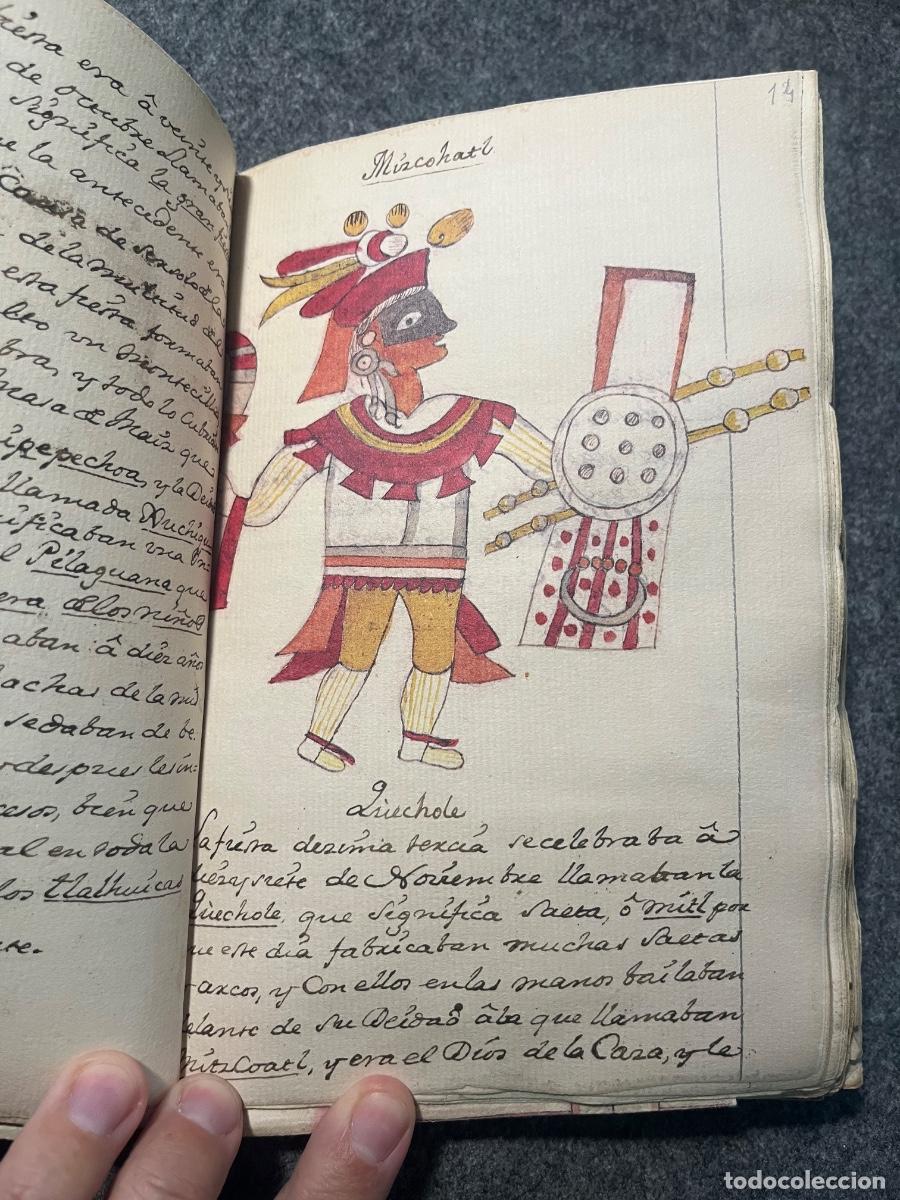 fiesta era â veinte y
de octubre llamaban
significa la gran fie
ue la antecedente era
de la multitud de
esta fiesta formaban
un montecillo
bras, y todo lo cubrian
masa de Maiz que
ipepechoa, y la Deida
llamada Xuchiqu
ificaban una In
l Pilaguana que
era de los niños
aban â diez años
achas de la mis
se daban de be
des pues les in=
esos, bien que
al en toda la
los tlalhuicas
te.
14
Mizcohatl
Quechole
La fiesta dezima tercia se celebraba â
iez y siete de Noviembre llamabanla
Quechole, que significa saeta, ô mitl por
ue este dia fabricaban muchas saetas
arcos, y con ellos en las manos bailaban
elante de su Deidad âla que llamaban
Mitzcoatl, y era el Dios de la Caza, y le
todocoleccion